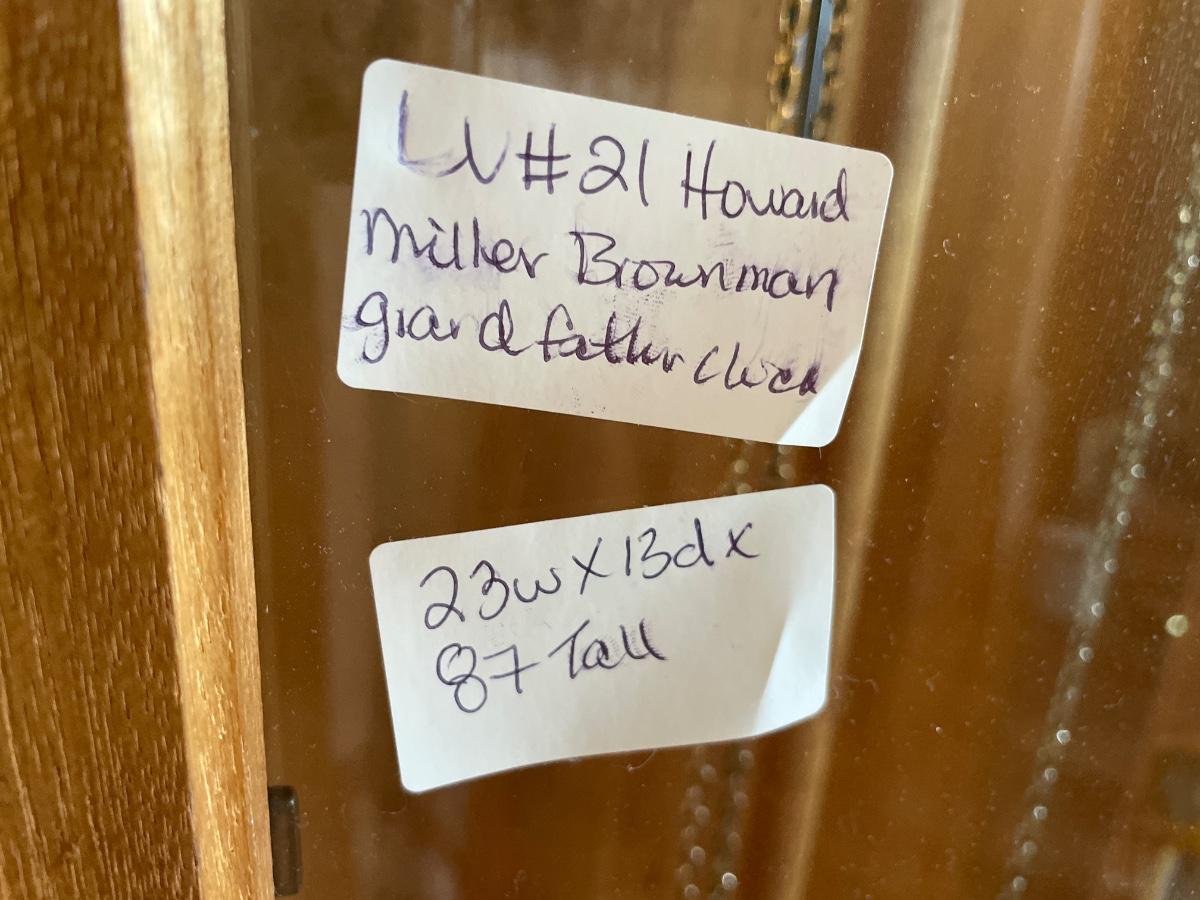 LV#21 Howard
Miller Brownman
grandfather clock
23w x 13d x
87 Tall